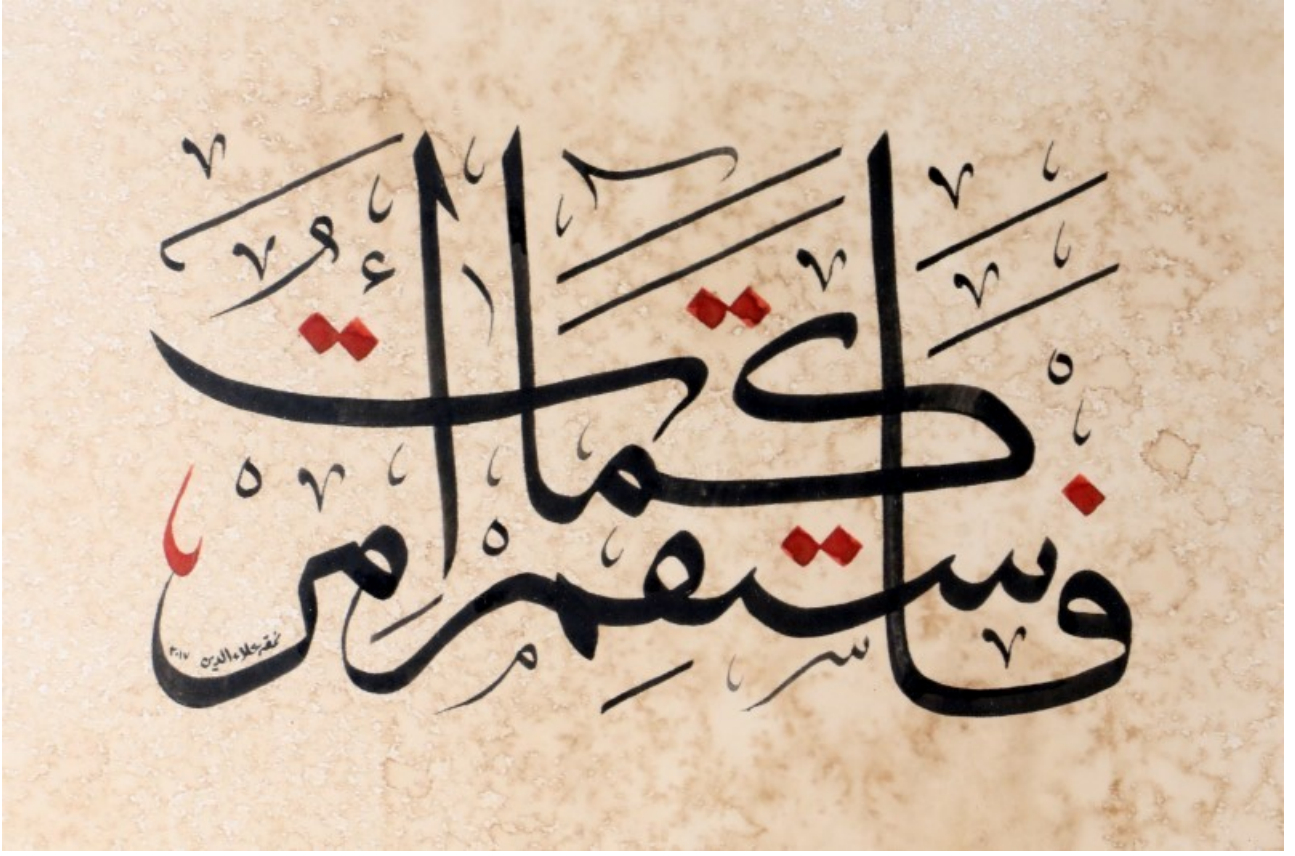 فَاسْتَقِمْ كَمَا أُمِرْتَ
نمقه علاء الدين ٢٠١٧